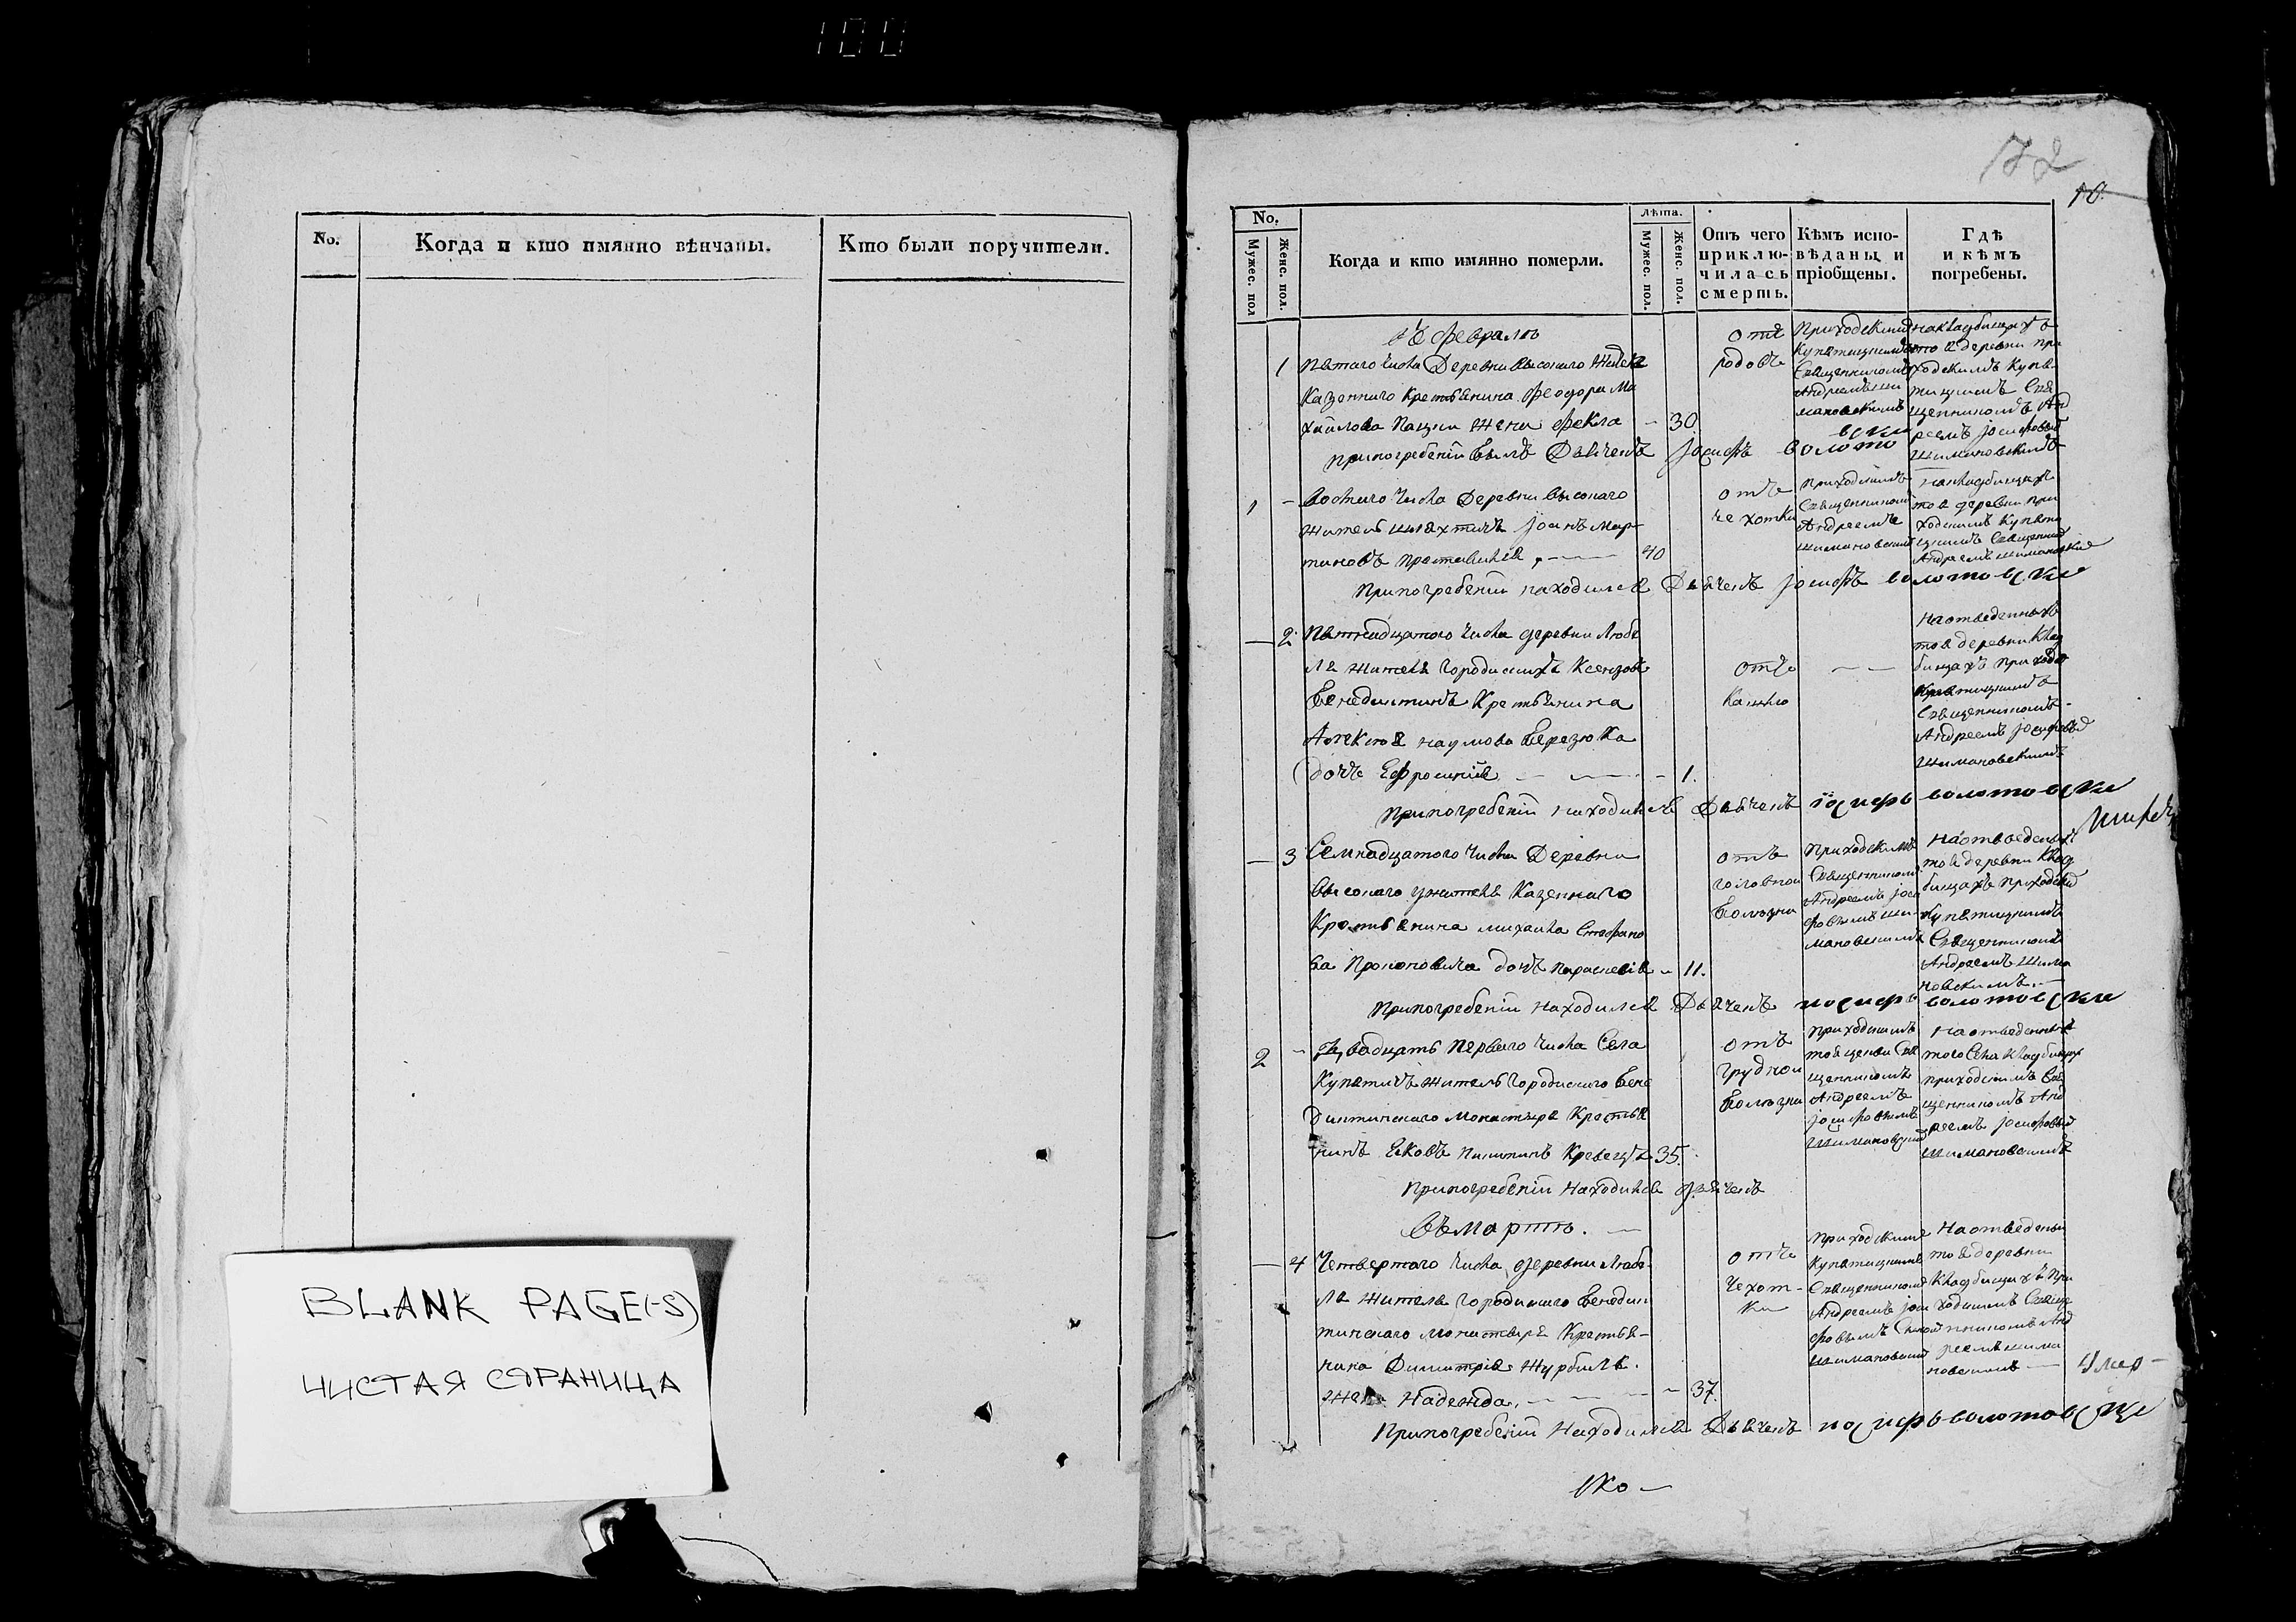 100
No.
Когда и кто имянно вѣнчаны.
Кто были поручители.
BLANK PAGE(-S)
ЧИСТАЯ СТРАНИЦА
72
10.
No.
Мужес. пол
Женс. пол.
Когда и кто имянно померли.
Лѣта.
Мужес. пол.
Женс. пол.
Отъ чего
приклю-
чилась
смерть.
Кѣмъ испо-
вѣданы и
пріобщены.
Гдѣ
и кѣмъ
погребены.
въ Февралѣ
1 Пятаго числа Деревни Высокаго Жителя
Казеннаго Крестьянина Феодора Ми
хайлова Жена Фекла - 30.
отъ
родовъ
Приходскимъ
Купятицкимъ
Священникомъ
Андреемъ Ши
мановскимъ
на кладбищахъ
тоя деревни при
ходскимъ Купя
тицкимъ Свя
щенникомъ Анд
реемъ Іосифовымъ
Шимановскимъ
при погребеніи былъ Дьячекъ Іосифъ Волото
вски
1 - Числа Деревни Высокаго
Житель шляхтичъ Іоанъ Мар
тиновъ 40
отъ
чехотки
приходскимъ
Священникомъ
Андреемъ
Шимановскимъ
на кладбищахъ
тоя деревни при
ходскимъ Купяти
цкимъ Священникомъ
Андреемъ Шимановским
При погребеніи находился Дьячекъ Іосифъ Волотовски
— 2 Пятнадцатого Числа деревни Любе
ля жителя Городискихъ Ксензовъ
Бенедиктиновъ Крестьянина
Алексея Наумова Березюка
дочь Ефросинія - 1.
отъ
кашлю
На отведенныхъ
тоя деревни Клад
бищахъ приход
Купятицкимъ
Священникомъ
Андреемъ Іосифовым
Шимановскимъ
При погребеніи находился Дьячекъ Іосифъ Волотовски
— 3 Семнадцатого Числа Деревни
Высокаго жителя Казеннаго
Крестьянина Михаила Стефано
ва Прокоповича дочь Параскевія - 11.
отъ
головной
Болѣзни
Приходскимъ
Священником
Андреемъ Іоси
фовымъ Ши
мановскимъ
На отведеныхъ
тоя деревни Клад
бищахъ Приходским
Купятицкимъ
Священникомъ
Андреемъ Шима
новскимъ. —
При погребеніи Находился Дьячекъ Иосифъ Волотовски
2 - Двадцать Перваго Числа Села
Купятичъ житель Городискаго Бене
диктинскаго Монастыря Крестья
нинъ Яковъ Кравецъ 35.
отъ
грудной
Болѣзни
Приходскимъ
тоя церкви Свя
щенникомъ
Андреемъ
Іосифовымъ
Шимановским
На отведенныхъ
того Села Кладбищах
приходскимъ Свя
щенникомъ Анд
реемъ Іосифовым
Шимановскимъ
При погребеніи Находился дьячекъ
Въ Мартѣ. —
— 4 Четвертаго Числа деревни Любе
ля жителя Городискаго Бенедик
тинскаго Монастыря Крестья-
нина Димитрія Журбиля.
Жена Надежда. - 37.
отъ
Чехот-
ки
Приходскимъ
Купятицкимъ
Священникомъ
Андреемъ Іоси
фовымъ
Шимановским
На отведеных
тоя деревни
Кладбищахъ При
ходскимъ Священ
никомъ Анд
реемъ Шима
новскимъ —
При погребеніи Находился Дьячекъ Иосифъ Волотовски